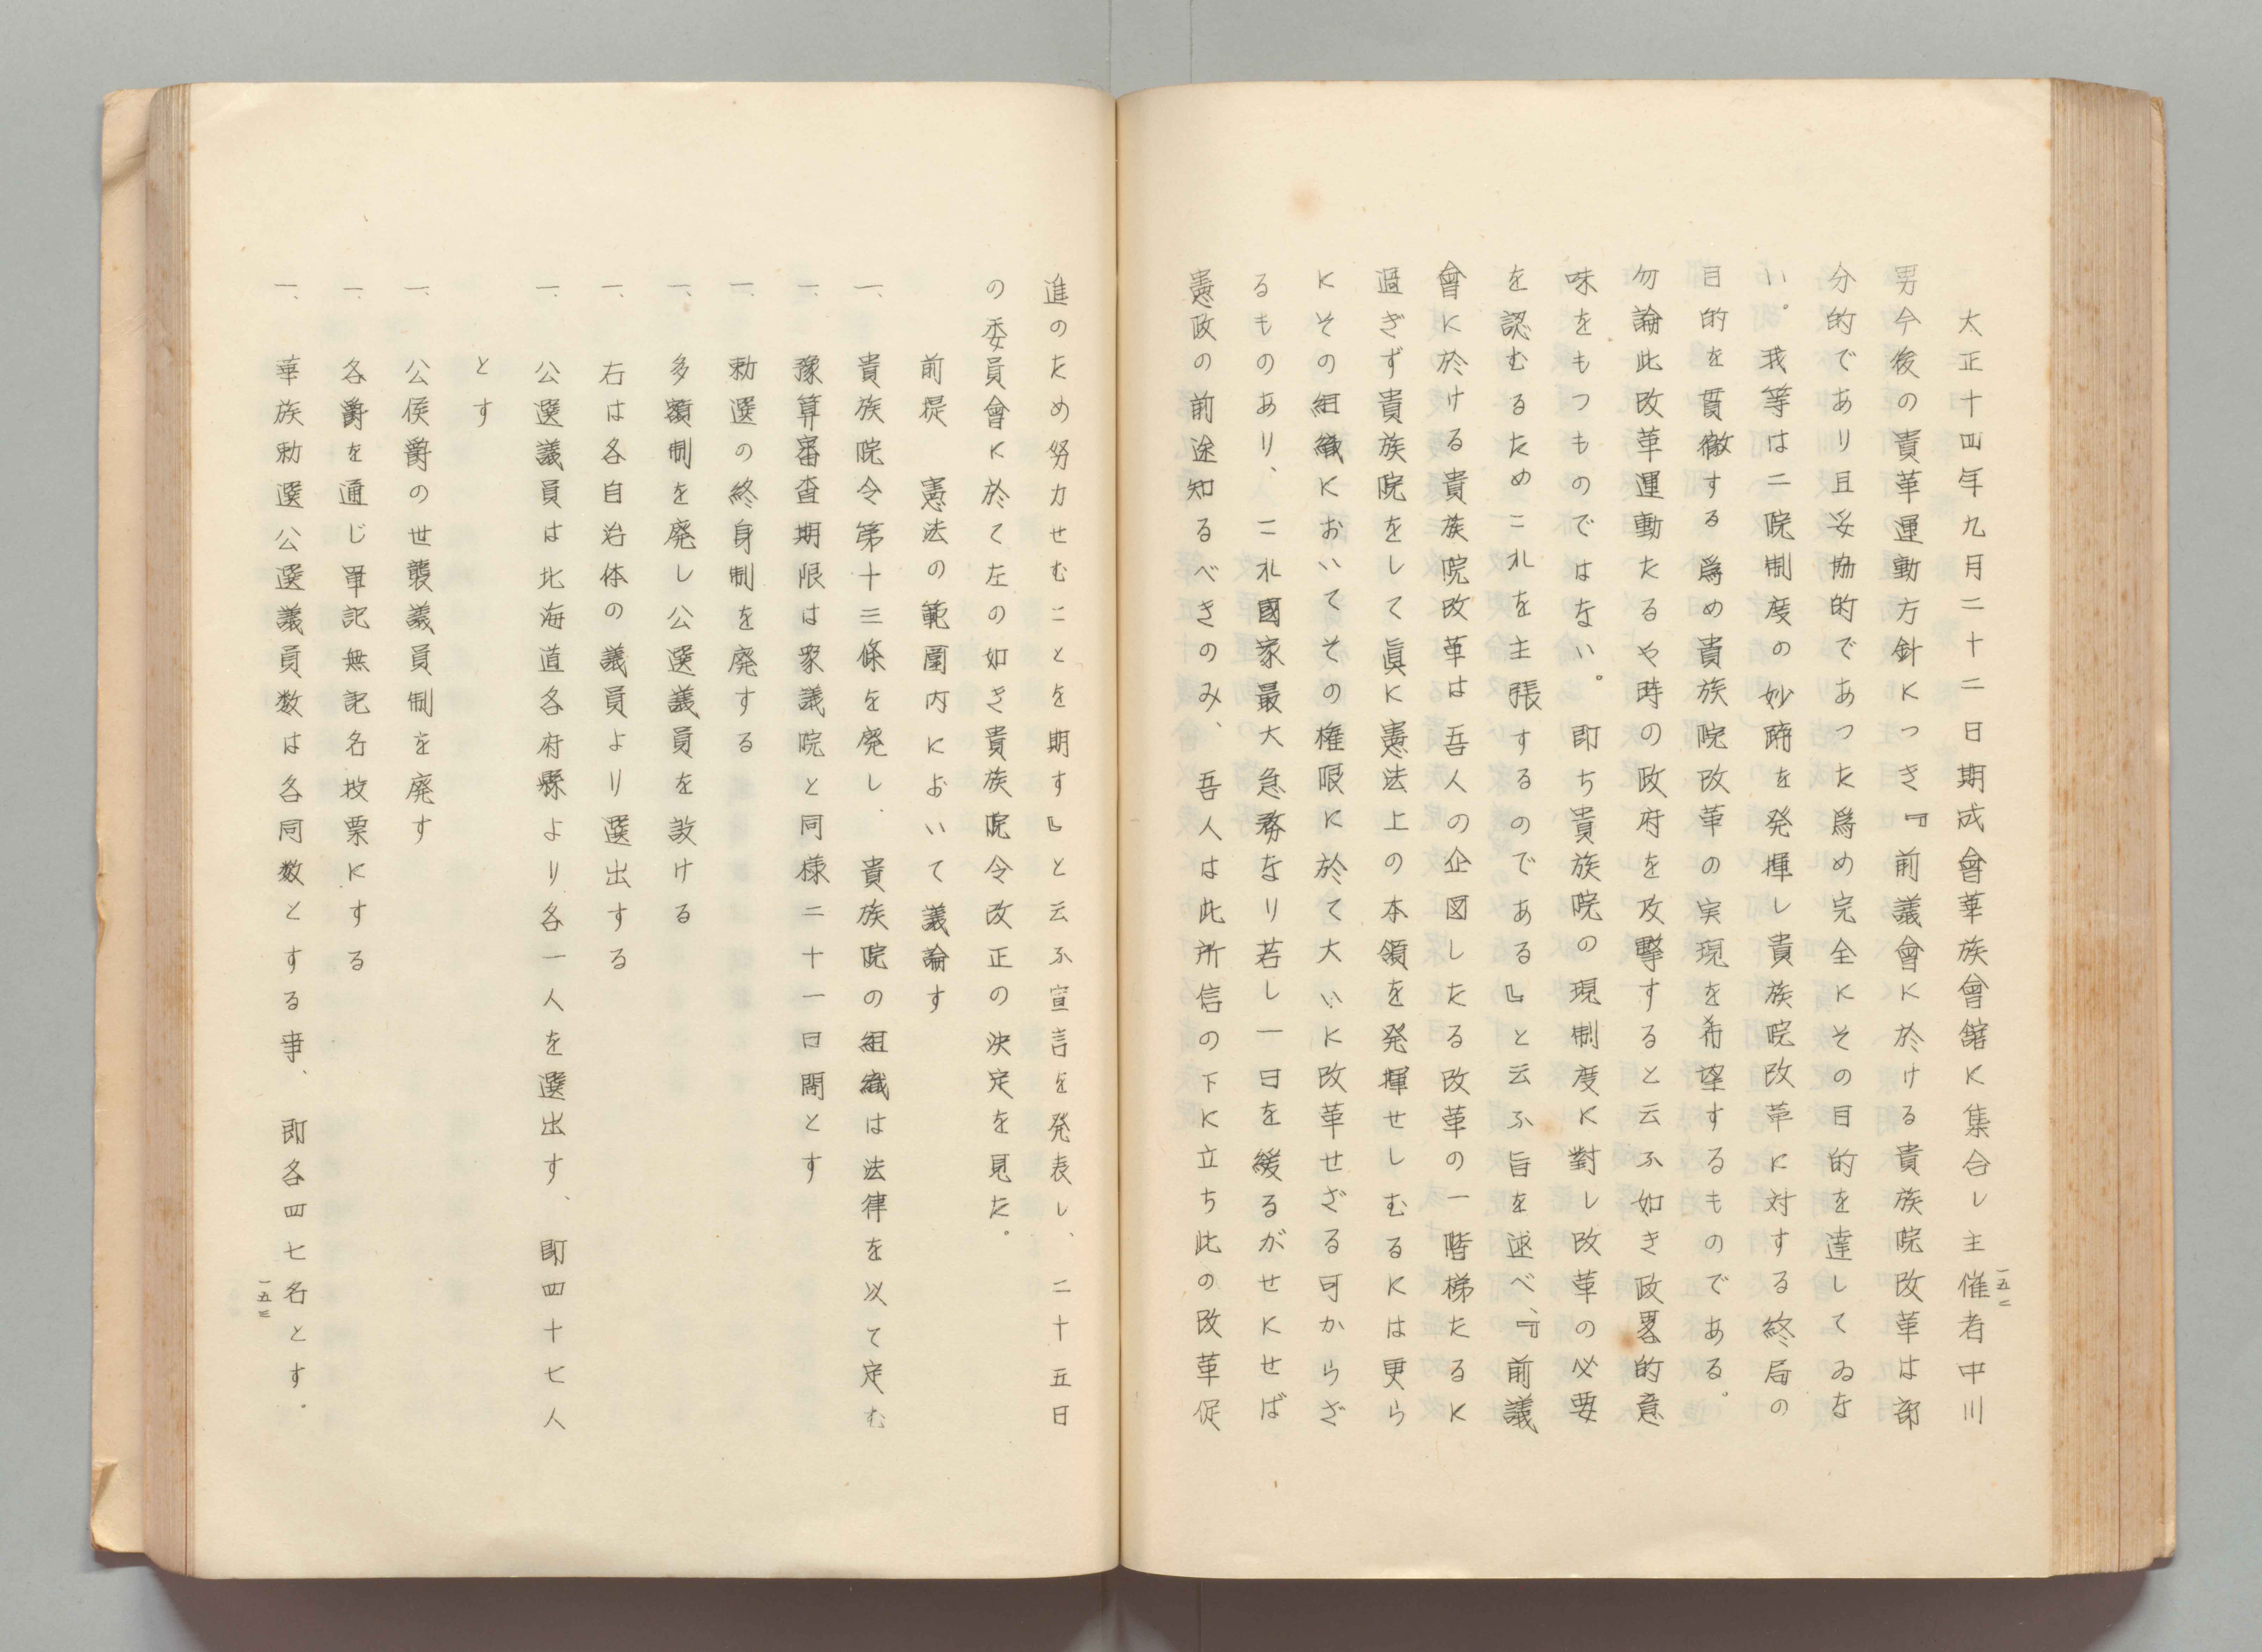 大正十四年九月二十二日期成會華族會館に集合し主催者中川
男今後の貴革運動方針につき『前議會に於ける貴族院改革は部
分的であり且妥協的であつた爲め完全にその目的を達してゐな
い。我等は二院制度の妙諦を発揮し貴族院改革に対する終局の
目的を貫徹する爲め貴族院改革の実現を希望するものである。
勿論此改革運動たるや時の政府を攻撃すると云ふ如き政畧的意
味をもつものではない。即ち貴族院の現制度に對し改革の必要
を認むるためこれを主張するのである』と云ふ旨を述べ、『前議
會に於ける貴族院改革は吾人の企図したる改革の一階梯たるに
過ぎず貴族院をして眞に憲法上の本領を発揮せしむるには更ら
にその組織においてその権限に於て大いに改革せざる可からざ
るものあり、これ國家最大急務なり若し一日を緩るがせにせば
憲政の前途知るべきのみ、吾人は此所信の下に立ち此の改革促
一五二
進のため努力せむことを期す』と云ふ宣言を発表し、二十五日
の委員會に於て左の如き貴族院令改正の決定を見た。
前提　憲法の範圍内において議論す
一、貴族院令第十三條を廃し、貴族院の組織は法律を以て定む
一、豫算審査期限は衆議院と同様二十一日間とす
一、勅選の終身制を廃する
一、多額制を廃し公選議員を設ける
一、右は各自治体の議員より選出する
一、公選議員は北海道各府縣より各一人を選出す、即四十七人
とす
一、公侯爵の世襲議員制を廃す
一、各爵を通じ單記無記名投票にする
一、華族勅選公選議員数は各同数とする事、即各四七名とす。
一五三